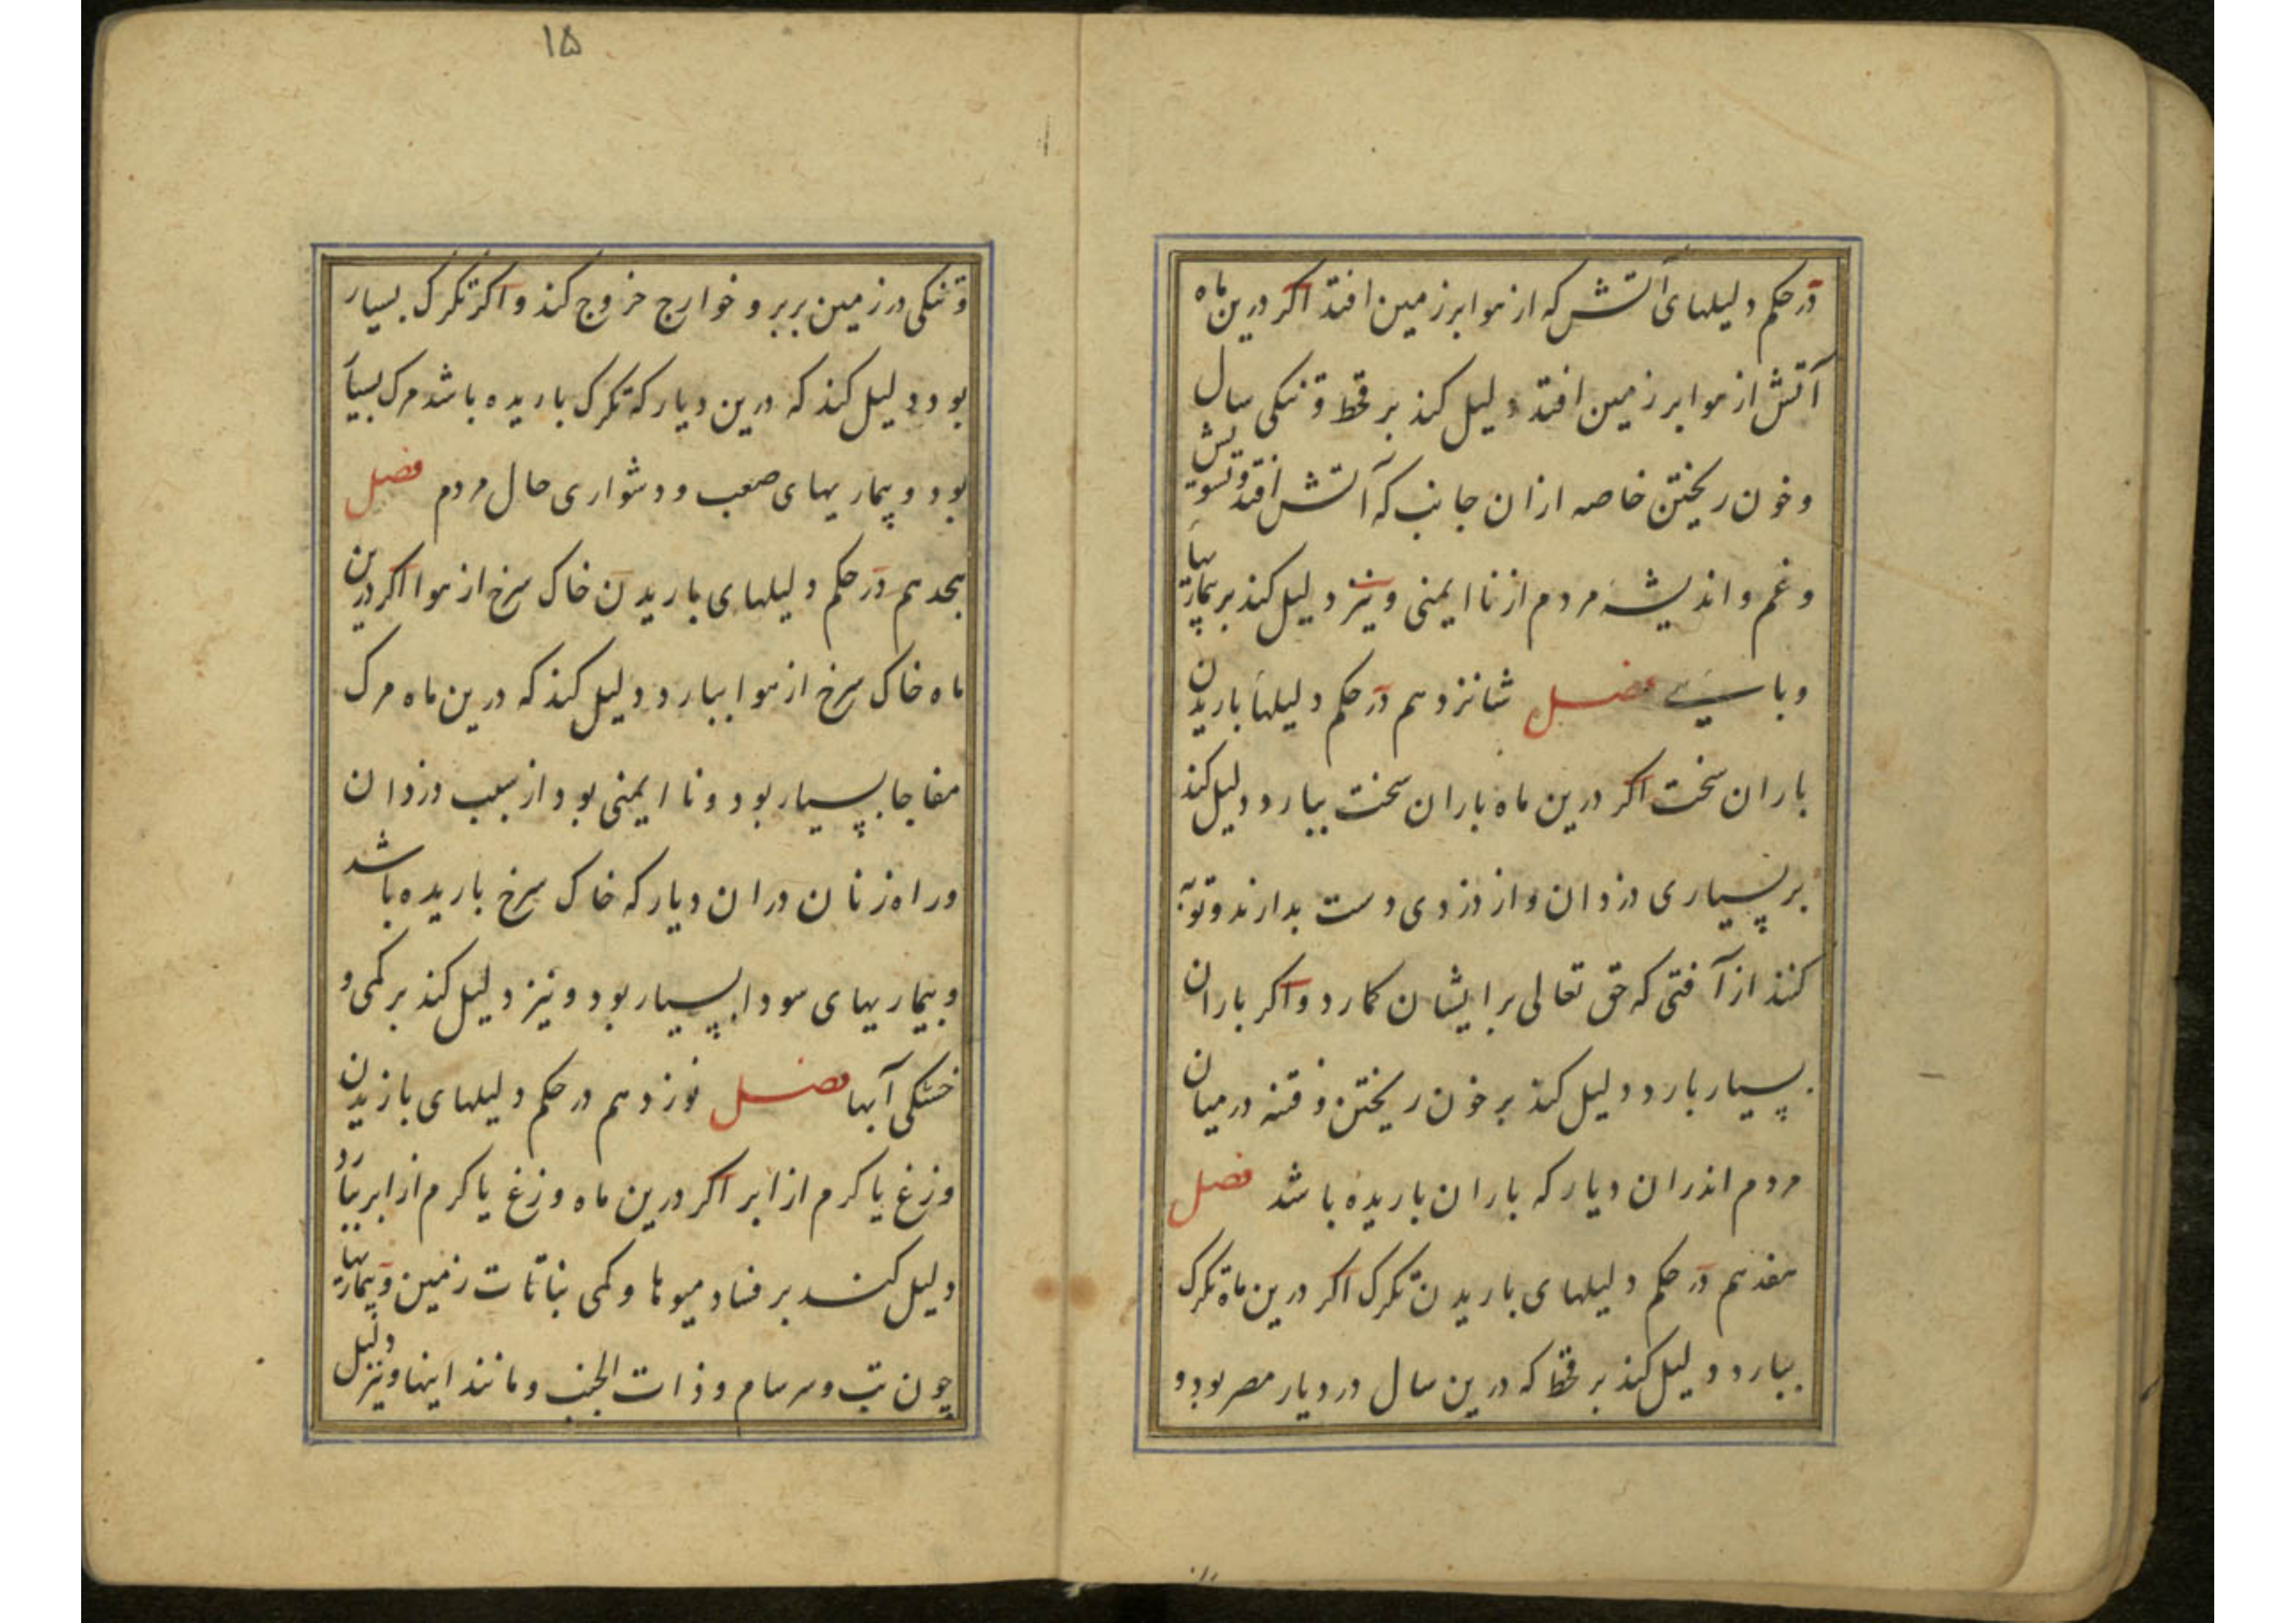 در حکم دلیلهای آتش که از هوا بر زمین افتد اکر درین ماه
آتش از هوا بر زمین افتد دلیل کند بر قحط و تنکی سال
و خون ریختن خاصه ازان جانب که آتش افتد و تشویش
و غم و اندیشه مردم از نا ایمنی و نیز دلیل کند بر بیماریها
وبایی فصل شانزدهم در حکم دلیلها باریدن
باران سخت اکر درین ماه باران سخت ببارد دلیل کند
بر بسیاری دزدان و از دزدی دست بدارند و توبه
کنند از آفتی که حق تعالی بر ایشان کمارد و اکر باران
بسیار بارد دلیل کند بر خون ریختن و فتنه در میان
مردم اندران دیار که باران باریده باشد فصل
هفدهم در حکم دلیلهای باریدن تکرک اکر درین ماه تکرک
ببارد دلیل کند بر قحط که درین سال در دیار مصر بود و
۱۵
و تنکی در زمین بربر و خوارج خروج کند و اکر تکرک بسیار
بود دلیل کند که درین دیار که تکرک باریده باشد مرک بسیار
بود و بیماریهای صعب و دشواری حال مردم فصل
هجدهم در حکم دلیلهای باریدن خاک سرخ از هوا اکر درین
ماه خاک سرخ از هوا ببارد دلیل کند که درین ماه مرک
مفاجا بسیار بود و نا ایمنی بود از سبب دزدان
و راه زنان دران دیار که خاک سرخ باریده باشد
و بیماریهای سودا بسیار بود و نیز دلیل کند بر کمی و
خشکی آبها فصل نوزدهم در حکم دلیلهای باریدن
وزغ یا کرم از ابر اکر درین ماه وزغ یا کرم از ابر ببارد
دلیل کند بر فساد میوها و کمی نباتات زمین و بیماریها
چون تب و سرسام و ذات الجنب و مانند اینها و نیز دلیل